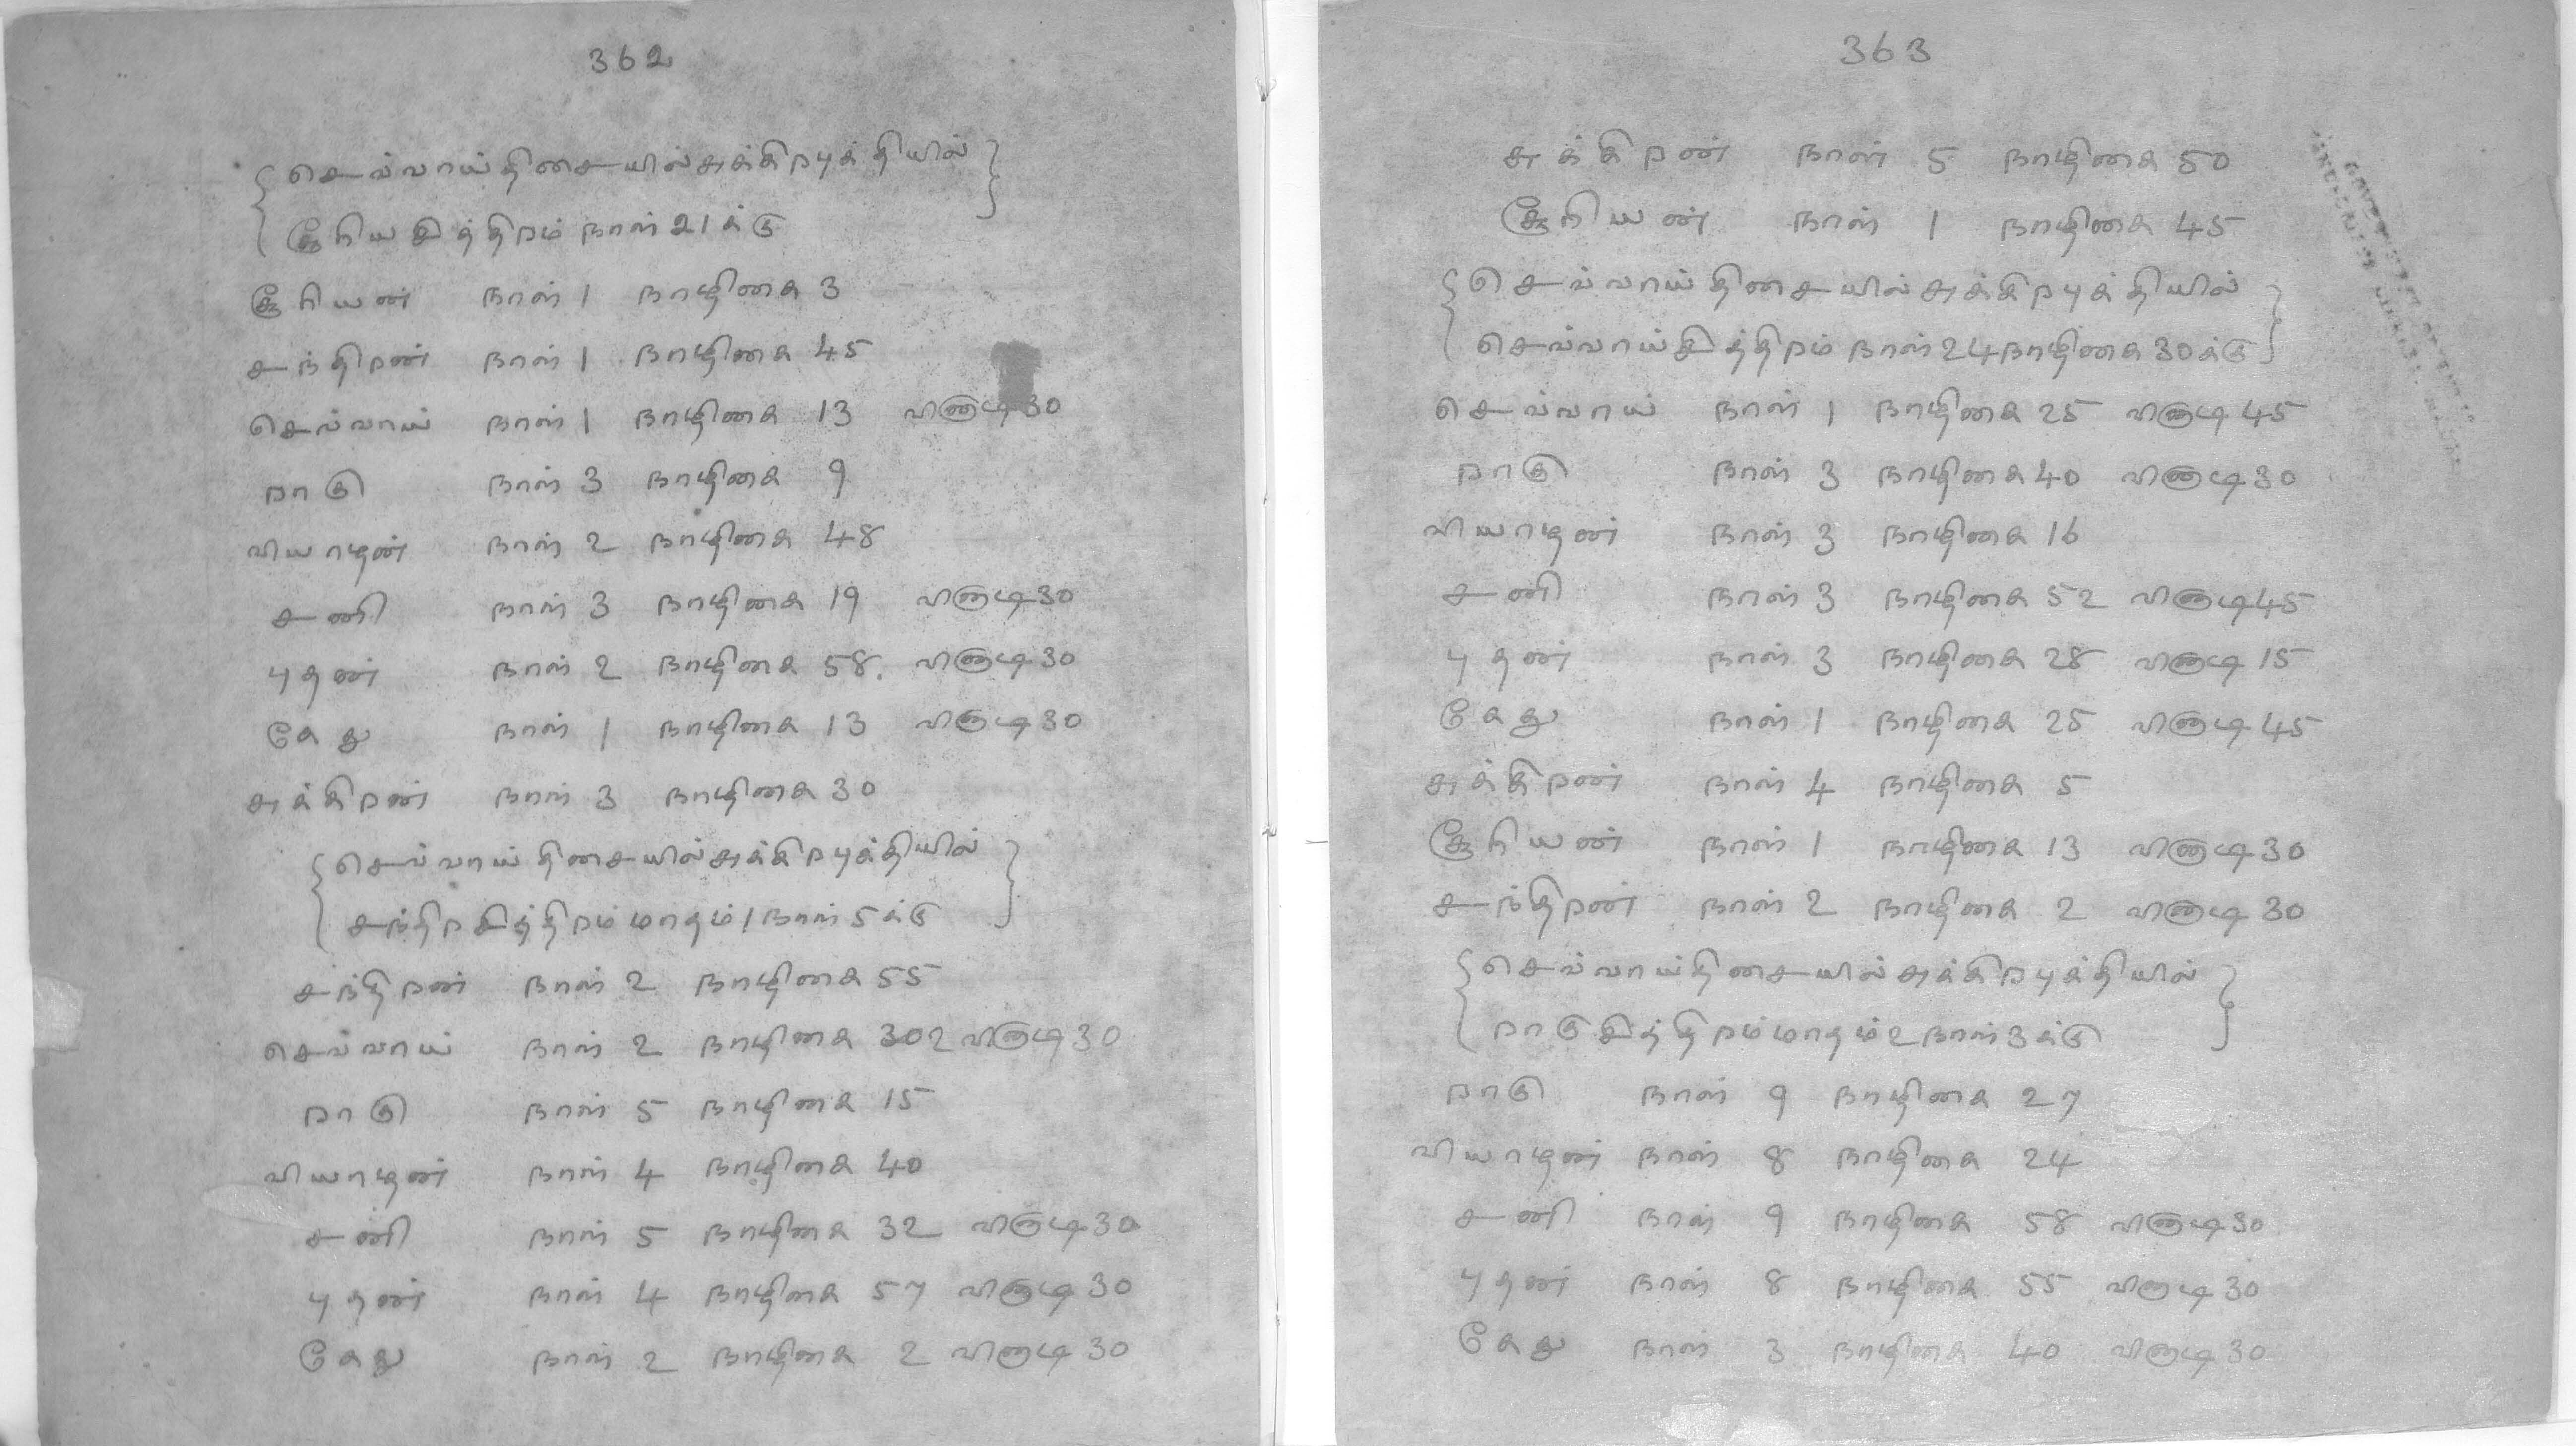 362
{ செவ்வாய்திசையில்சுக்கிறபுக்தியில் }
{ சூரியசித்திறம் நாள் 21க்கு
சூரியன் நாள் 1 நாழிகை 3
சந்திறன் நாள் 1 நாழிகை 45
செவ்வாய் நாள் 1 நாழிகை 13 வினாடி 30
றாகு நாள் 3 நாழிகை 9
வியாழன் நாள் 2 நாழிகை 48
சனி நாள் 3 நாழிகை 19 வினாடி 30
புதன் நாள் 2 நாழிகை 58. வினாடி 30
கேது நாள் 1 நாழிகை 13 வினாடி 30
சுக்கிறன் நாள் 3 நாழிகை 30
{ செவ்வாய் திசையில்சுக்கிறபுக்தியில் }
{ சந்திறசித்திறம் மாதம் 1 நாள் 5க்கு }
சந்திறன் நாள் 2 நாழிகை 55
செவ்வாய் நாள் 2 நாழிகை 302 வினாடி 30
றாகு நாள் 5 நாழிகை 15
வியாழன் நாள் 4 நாழிகை 40
சனி நாள் 5 நாழிகை 32 வினாடி 30
புதன் நாள் 4 நாழிகை 57 வினாடி 30
கேது நாள் 2 நாழிகை 2 வினாடி 30
363
சுக்கிறன் நாள் 5 நாழிகை 50
சூரியன் நாள் 1 நாழிகை 45
{ செவ்வாய் திசையில் சுக்கிறபுக்தியில் }
{ செவ்வாய்சித்திறம் நாள் 24 நாழிகை 30க்கு }
செவ்வாய் நாள் 1 நாழிகை 25 வினாடி 45
றாகு நாள் 3 நாழிகை 40 வினாடி 30
வியாழன் நாள் 3 நாழிகை 16
சனி நாள் 3 நாழிகை 52 வினாடி 45
புதன் நாள் 3 நாழிகை 28 வினாடி 15
கேது நாள் 1 நாழிகை 25 வினாடி 45
சுக்கிறன் நாள் 4 நாழிகை 5
சூரியன் நாள் 1 நாழிகை 13 வினாடி 30
சந்திறன் நாள் 2 நாழிகை 2 வினாடி 30
{ செவ்வாய்திசையில் சுக்கிறபுக்தியில் }
{ றாகுசித்திறம் மாதம் 2 நாள் 3க்கு }
றாகு நாள் 9 நாழிகை 27
வியாழன் நாள் 8 நாழிகை 24
சனி நாள் 9 நாழிகை 58 வினாடி 30
புதன் நாள் 8 நாழிகை 55 வினாடி 30
கேது நாள் 3 நாழிகை 40 வினாடி 30